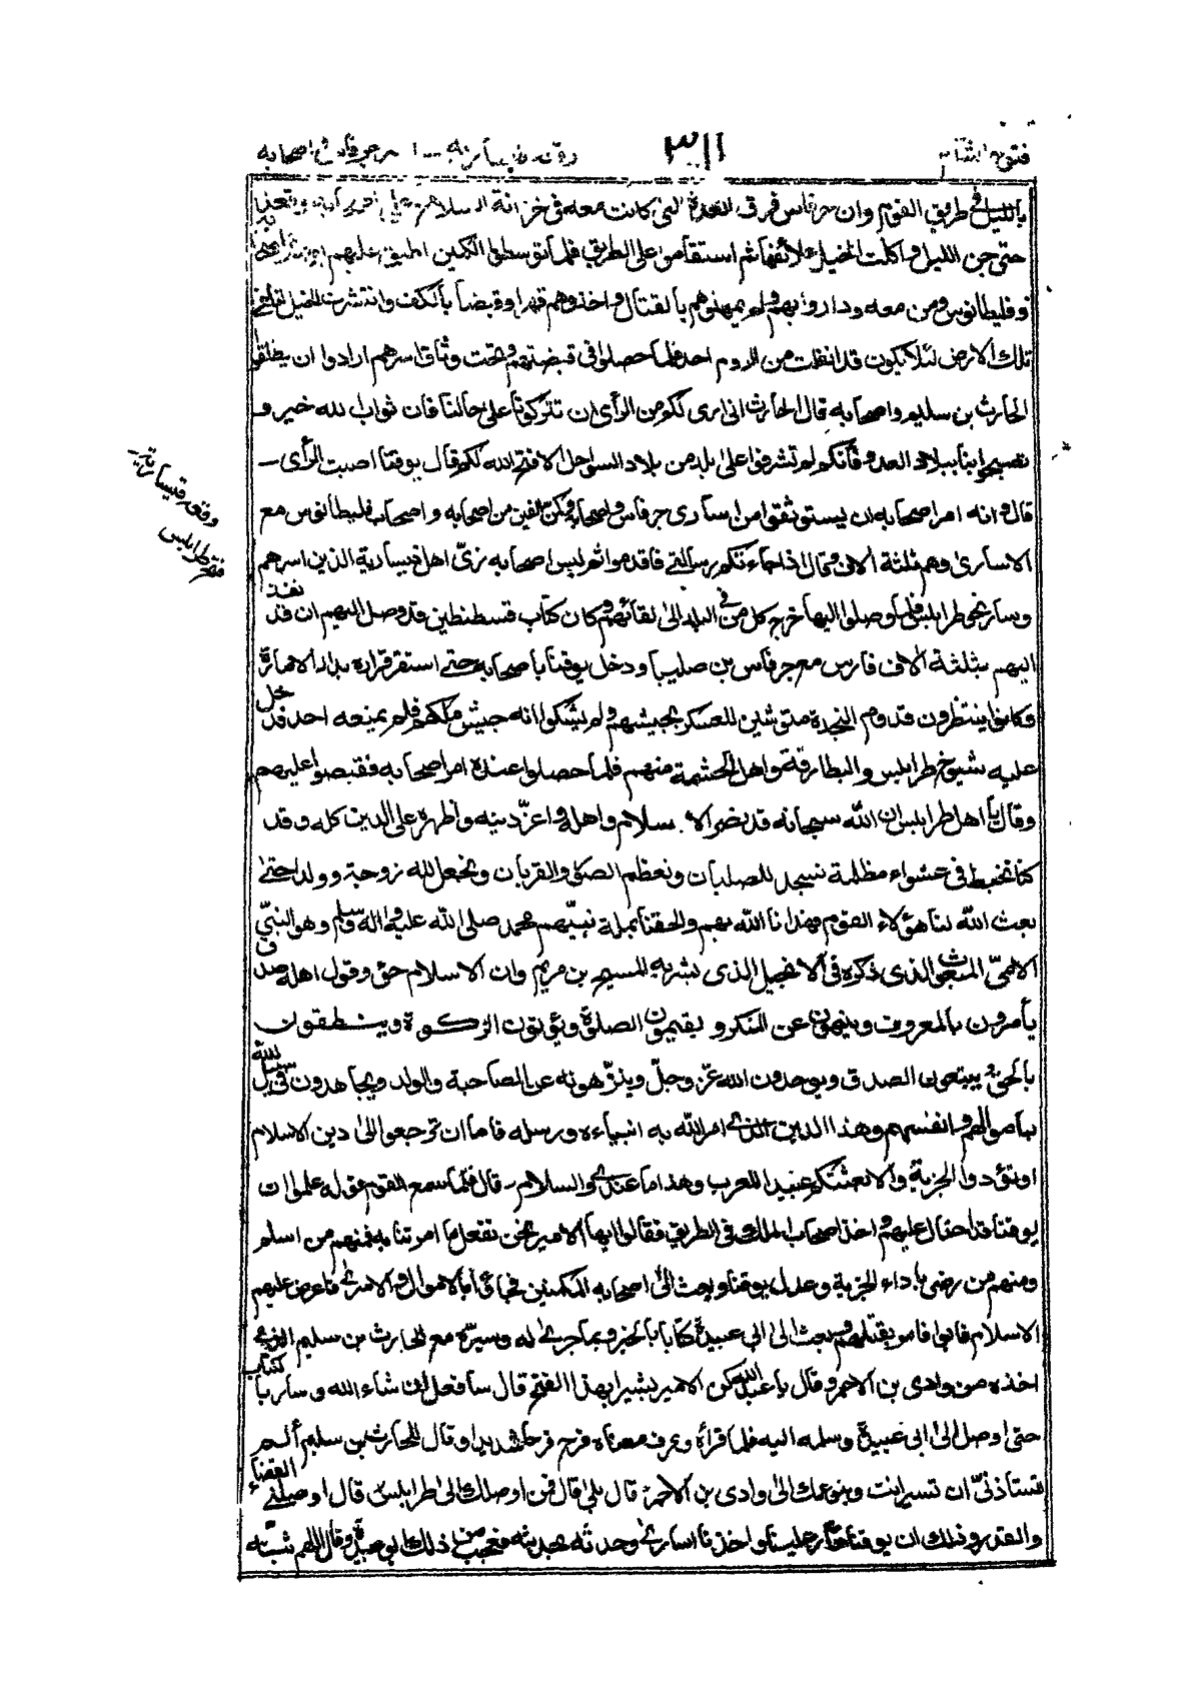 فتوح الشام
٣١١
جرفاس و اصحابه
بالليل في طريق القوم وان جرفاس فرق العدة التي كانت معه في خزانة السلاح
حتى جن الليل واكلت الخيل علائقها ثم استقاموا على الطريق فلما توسطوا الكمين اطبق عليهم
وفليطانوس ومن معه وداروا بهم ولم يمهلوهم بالقتال واخذوهم قهرا وقبضا بالكف وانتشرت الخيل في
تلك الارض لئلا يكون قد انفلت من الروم احد فلما حصلوا في قبضتهم وتحت وثاق اسرهم ارادوا ان يطلقوا
الحارث بن سليم واصحابه قال الحارث انى ارى لكم من الرأى ان تتركونا على حالنا فان ثواب الله خير و
نصبح بنا ببلاد العدو فأنكم لم تشرفوا على بلد من بلاد السواحل الا فتح الله لكم قال يوقنا اصبت الرأى
قال وانه امر اصحابه ان يستوثقوا من اسارى جرفاس واصحابه وكمن الفين من اصحابه واصحاب فليطانوس مع
الاسارى وهم ثلثة الاف وقال اذا جاءتكم رسالتي فاقدموا ثم لبس اصحابه زىّ اهل قيسارية الذين اسرهم
وسار نحو طرابلس فلما وصلوا اليها خرج كل من فى البلد الى لقائهم وكان كتاب قسطنطين قد وصل اليهم ان قد نفذ
اليهم بثلثة الاف فارس مع جرفاس بن صليبا ودخل يوقنا باصحابه حتى استقر قراره بدار الامارة
وكانوا ينتظرون قدوم النجدة للعسكر بجيشهم ولم يشكوا انه جيش ملكهم فلم يمنعه احد فدخل
عليه شيوخ طرابلس والبطارقة واهل الحشمة منهم فلما حصلوا عنده امر اصحابه فقبضوا عليهم
وقال يا اهل طرابلس ان الله سبحانه قد نصر الاسلام واهله واعزّ دينه واظهره على الدين كله وقد
كنا نخبط فى عشواء مظلمة نسجد للصلبان ونعظم الصور والقربان ونجعل لله زوجة وولدا حتى
بعث الله لنا هؤلاء القوم فهدانا الله بهم والحقنا بملة نبيّهم محمد صلى الله عليه واله وسلم وهو النبىّ
الامىّ المبعوث الذى ذكره فى الانجيل الذى بشر به المسيح بن مريم وان الاسلام حق وقول اهله صدق
يأمرون بالمعروف وينهون عن المنكر و يقيمون الصلوة ويؤتون الزكوة وينطقون
بالحق و يبتغون الصدق ويوحدون الله عزّ وجلّ وينزّهونه عن الصاحبة والولد ويجاهدون في سبيل الله
باموالهم وانفسهم وهذا الدين الذي امر الله به انبياءه ورسله فاما ان ترجعوا الى دين الاسلام
او تؤدوا الجزية والا بعثتكم عبيدا للعرب وهذا ما عندي والسلام قال فلما سمع القوم قوله علموا ان
يوقنا قد احتال عليهم واخذ اصحاب الملك فى الطريق فقالوا ايها الامير نحن نفعل ما امرتنا به فمنهم من اسلم
ومنهم من رضى باداء الجزية وعدل يوقنا وبعث الى اصحابه المكمنين فجاؤا بالاموال والاسرى فاعرض عليهم
الاسلام فابوا فامر بقتلهم وبعث الى ابي عبيدة كتابا بالخبر وبما جرى له وسيرّه مع الحارث بن سليم الذي
اخذه من وادى بن الاحمر وقال يا عبد الله كن الامير بشيرا بهذا الفتح قال سأفعل ان شاء الله وسار بالكتاب
حتى اوصل الى ابى عبيدة وسلمه اليه فلما قرأه وعرف معناه فرح فرحا شديدا وقال للحارث بن سليم ألم
تستأذنّى ان تسير انت وبنو عمك الى وادى بن الاحمر قال بلى قال فمن اوصلك الى طرابلس قال اوصلني القضاء
والقدر وذلك ان يوقنا غار علينا واخذنا اسارى وحدثه بحديثه فعجب من ذلك ابو عبيدة وقال اللهم ثبّته
وقعه قيسارية
فتح طرابلس